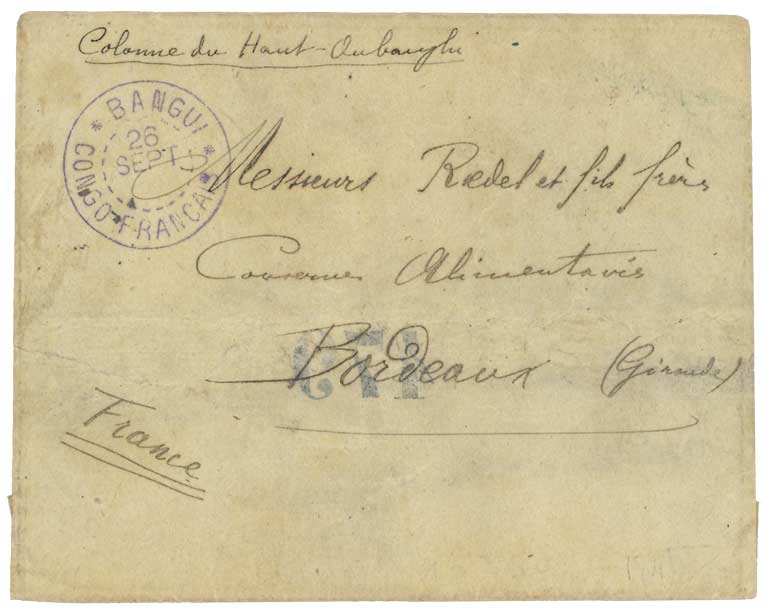 Colonne du Haut-Oubanghi
* BANGUI *
26
SEPT
CONGO FRANCAIS
Messieurs Rœdel et fils frères
Conserves Alimentaires
Bordeaux (Gironde)
France